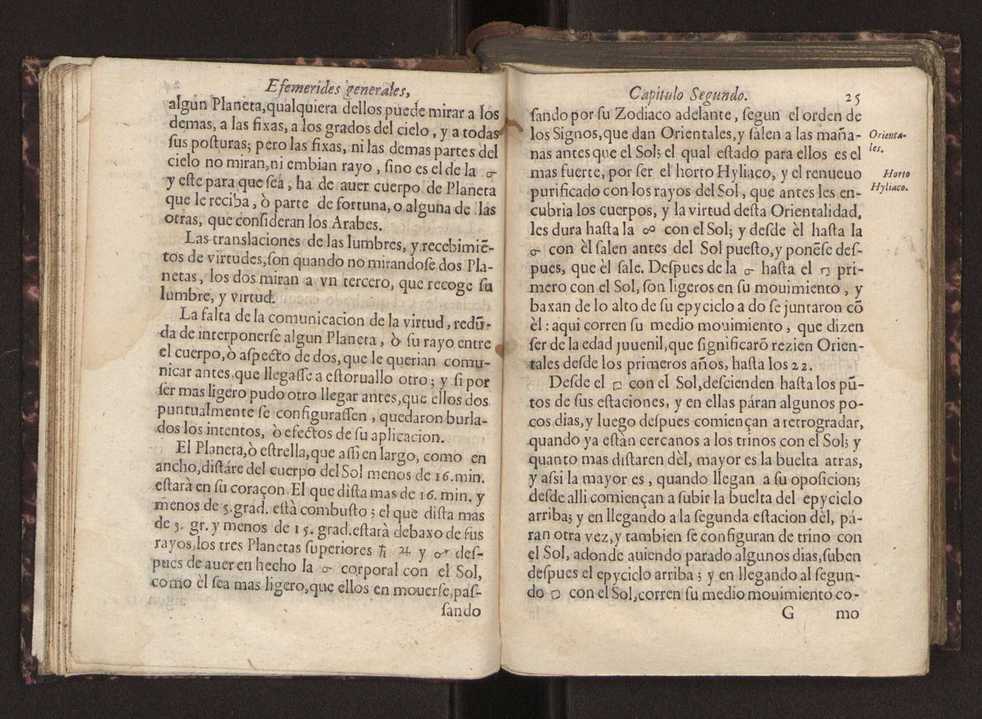 Efemerides generales,
algun Planeta,qualquiera dellos puede mirar a los
demas, a las fixas, a los grados del cielo, y a todas
ſus poſturas; pero las fixas, ni las demas partes del
cielo no miran,ni embian rayo, ſino es el de la ☌
y eſte para que ſeá, ha de auer cuerpo de Planeta
que le reciba, ò parte de fortuna, o alguna de las
otras, que conſideran los Arabes.
Las translaciones de las lumbres, y recebimiẽ-
tos de virtudes,ſon quando no mirandoſe dos Pla-
netas, los dos miran a vn tercero, que recoge ſu
lumbre, y virtud.
La falta de la comunicacion de la virtud, redũ-
da de interponerſe algun Planeta, ò ſu rayo entre
el cuerpo,ò aſpecto de dos,que le querian comu-
nicar antes que llegaſſe a eſtoruallo otro; y ſi por
ſer mas ligero pudo otro llegar antes,que ellos dos
puntualmente ſe configuraſſen, quedaron burla-
dos los intentos, ò efectos de ſu aplicacion.
El Planeta,ò eſtrella,que aſſi en largo, como en
ancho,diſtáre del cuerpo del Sol menos de 16.min.
eſtarà en ſu coraçon. El que diſta mas de 16. min. y
menos de 5.grad. eſtà combuſto; el que diſta mas
de 5. gr. y menos de 15. grad.eſtarà debaxo de ſus
rayos,los tres Planetas ſuperiores ♄ ♃ y ♂ deſ-
pues de auer en hecho la ☌ corporal con el Sol,
como èl ſea mas ligero,que ellos en mouerſe,paſ-
ſando
Capitulo Segundo. 25
ſando por ſu Zodiaco adelante, ſegun el orden de
los Signos,que dan Orientales,y ſalen a las maña-
nas antes que el Sol; el qual eſtado para ellos es el
mas fuerte, por ſer el horto Hyliaco, y el renueuo
purificado con los rayos del Sol, que antes les en-
cubria los cuerpos, y la virtud deſta Orientalidad,
les dura haſta la ☍ con el Sol; y deſde èl haſta la
☌ con èl ſalen antes del Sol pueſto,y ponẽſe deſ-
pues, que èl ſale. Deſpues de la ☌ haſta el □ pri-
mero con el Sol, ſon ligeros en ſu mouimiento, y
baxan de lo alto de ſu epyciclo a do ſe juntaron cõ
èl: aqui corren ſu medio mouimiento, que dizen
ſer de la edad juuenil,que ſignificarõ rezien Orien-
tales deſde los primeros años, haſta los 22.
Deſde el □ con el Sol,deſcienden haſta los pũ-
tos de ſus eſtaciones, y en ellas páran algunos po-
cos dias,y luego deſpues comiençan a retrogradar,
quando ya eſtàn cercanos a los trinos con el Sol; y
quanto mas diſtaren dèl, mayor es la buelta atras,
y aſsi la mayor es, quando llegan a ſu opoſicion;
deſde alli comiençan a ſubir la buelta del epyciclo
arriba; y en llegando a la ſegunda eſtacion dèl, pá-
ran otra vez,y tambien ſe configuran de trino con
el Sol, adonde auiendo parado algunos dias,ſuben
deſpues el epyciclo arriba; y en llegando al ſegun-
do □ con el Sol,corren ſu medio mouimiento co-
G mo
Orienta-
les.
Horto
Hyliaco.